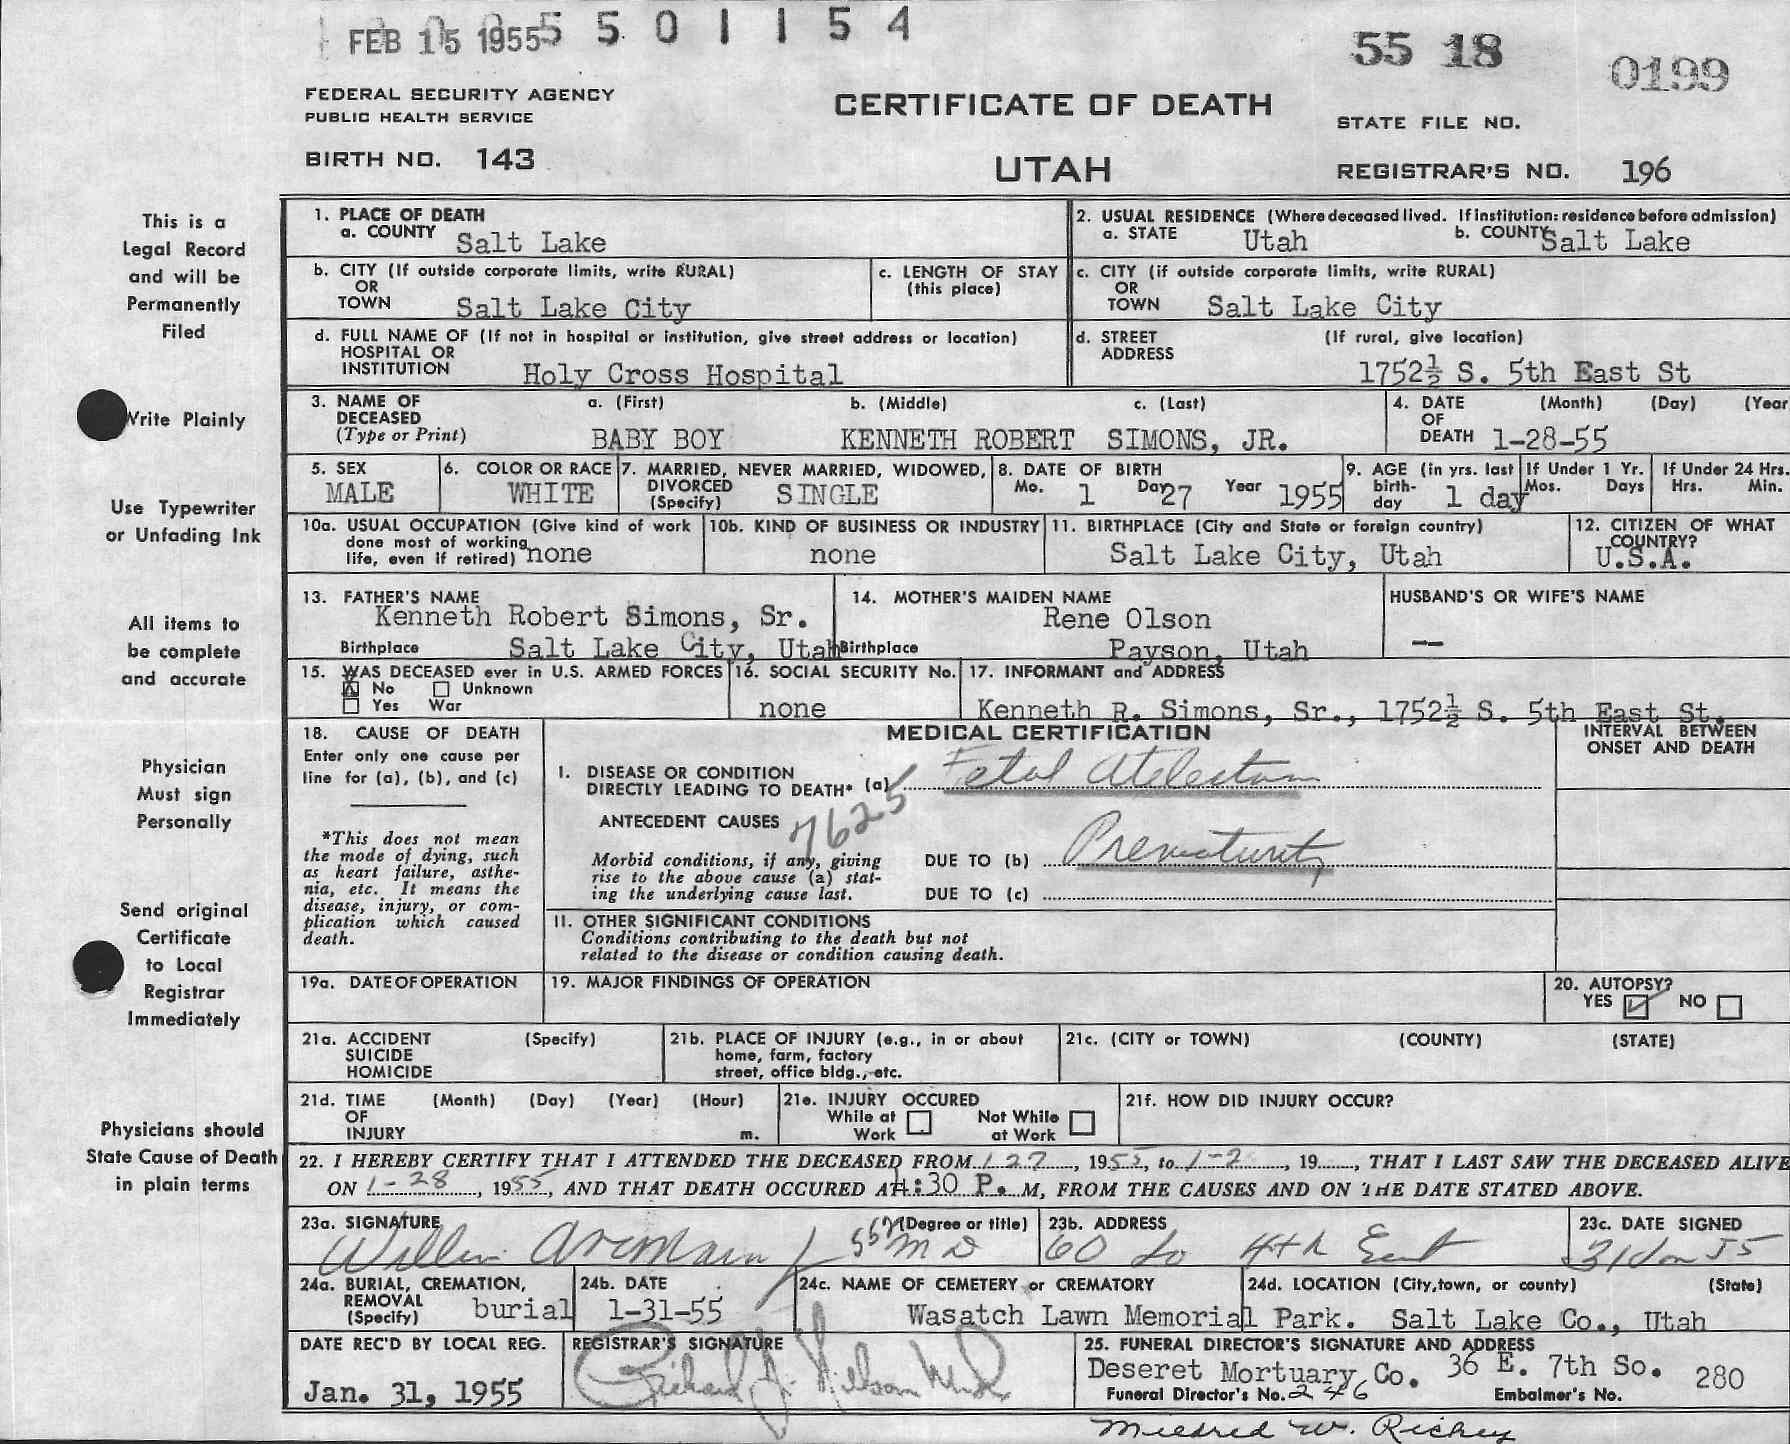 FEB 15 1955
5 5 0 1 1 5 4
55 18
0199
FEDERAL SECURITY AGENCY
PUBLIC HEALTH SERVICE
CERTIFICATE OF DEATH
STATE FILE NO.
BIRTH NO. 143
UTAH
REGISTRAR'S NO. 196
This is a
Legal Record
and will be
Permanently
Filed
Write Plainly
Use Typewriter
or Unfading Ink
All items to
be complete
and accurate
Physician
Must sign
Personally
Send original
Certificate
to Local
Registrar
Immediately
Physicians should
State Cause of Death
in plain terms
1. PLACE OF DEATH
a. COUNTY Salt Lake
2. USUAL RESIDENCE (Where deceased lived. If institution: residence before admission)
a. STATE Utah b. COUNTY Salt Lake
b. CITY (If outside corporate limits, write RURAL)
OR
TOWN Salt Lake City
c. LENGTH OF STAY
(this place)
c. CITY (if outside corporate limits, write RURAL)
OR
TOWN Salt Lake City
d. FULL NAME OF (If not in hospital or institution, give street address or location)
HOSPITAL OR
INSTITUTION Holy Cross Hospital
d. STREET (If rural, give location)
ADDRESS
1752½ S. 5th East St
3. NAME OF a. (First) b. (Middle) c. (Last)
DECEASED
(Type or Print) BABY BOY KENNETH ROBERT SIMONS, JR.
4. DATE (Month) (Day) (Year
OF
DEATH 1-28-55
5. SEX
MALE
6. COLOR OR RACE
WHITE
7. MARRIED, NEVER MARRIED, WIDOWED,
DIVORCED
(Specify) SINGLE
8. DATE OF BIRTH
Mo. 1 Day 27 Year 1955
9. AGE (in yrs. last
birth-
day 1 day
If Under 1 Yr.
Mos. Days
If Under 24 Hrs.
Hrs. Min.
10a. USUAL OCCUPATION (Give kind of work
done most of working
life, even if retired) none
10b. KIND OF BUSINESS OR INDUSTRY
none
11. BIRTHPLACE (City and State or foreign country)
Salt Lake City, Utah
12. CITIZEN OF WHAT
COUNTRY?
U.S.A.
13. FATHER'S NAME
Kenneth Robert Simons, Sr.
Birthplace Salt Lake City, Utah
14. MOTHER'S MAIDEN NAME
Rene Olson
Birthplace Payson, Utah
HUSBAND'S OR WIFE'S NAME
--
15. WAS DECEASED ever in U.S. ARMED FORCES
X No Unknown
Yes War
16. SOCIAL SECURITY No.
none
17. INFORMANT and ADDRESS
Kenneth R. Simons, Sr., 1752½ S. 5th East St.
18. CAUSE OF DEATH
Enter only one cause per
line for (a), (b), and (c)
*This does not mean
the mode of dying, such
as heart failure, asthe-
nia, etc. It means the
disease, injury, or com-
plication which caused
death.
MEDICAL CERTIFICATION
INTERVAL BETWEEN
ONSET AND DEATH
I. DISEASE OR CONDITION
DIRECTLY LEADING TO DEATH* (a) Fetal
7625
ANTECEDENT CAUSES
Morbid conditions, if any, giving
rise to the above cause (a) stat-
ing the underlying cause last.
DUE TO (b) Prematurity
DUE TO (c)
II. OTHER SIGNIFICANT CONDITIONS
Conditions contributing to the death but not
related to the disease or condition causing death.
19a. DATE OF OPERATION
19. MAJOR FINDINGS OF OPERATION
20. AUTOPSY?
YES ✓ NO
21a. ACCIDENT (Specify)
SUICIDE
HOMICIDE
21b. PLACE OF INJURY (e.g., in or about
home, farm, factory
street, office bldg., etc.
21c. (CITY or TOWN) (COUNTY) (STATE)
21d. TIME (Month) (Day) (Year) (Hour)
OF
INJURY m.
21e. INJURY OCCURED
While at Work Not While at Work
21f. HOW DID INJURY OCCUR?
22. I HEREBY CERTIFY THAT I ATTENDED THE DECEASED FROM 1 27, 1955, to 1-2, 19, THAT I LAST SAW THE DECEASED ALIVE
ON 1-28, 1955, AND THAT DEATH OCCURED AT 4:30 P. M, FROM THE CAUSES AND ON THE DATE STATED ABOVE.
23a. SIGNATURE (Degree or title)
M D
23b. ADDRESS
60 So 4th East
23c. DATE SIGNED
31 Jan 55
24a. BURIAL, CREMATION,
REMOVAL
(Specify) burial
24b. DATE
1-31-55
24c. NAME OF CEMETERY or CREMATORY
Wasatch Lawn Memorial Park.
24d. LOCATION (City, town, or county) (State)
Salt Lake Co., Utah
DATE REC'D BY LOCAL REG.
Jan. 31, 1955
REGISTRAR'S SIGNATURE
25. FUNERAL DIRECTOR'S SIGNATURE AND ADDRESS
Deseret Mortuary Co. 36 E. 7th So. 280
Funeral Director's No. 246 Embalmer's No.
Mildred W. Richey